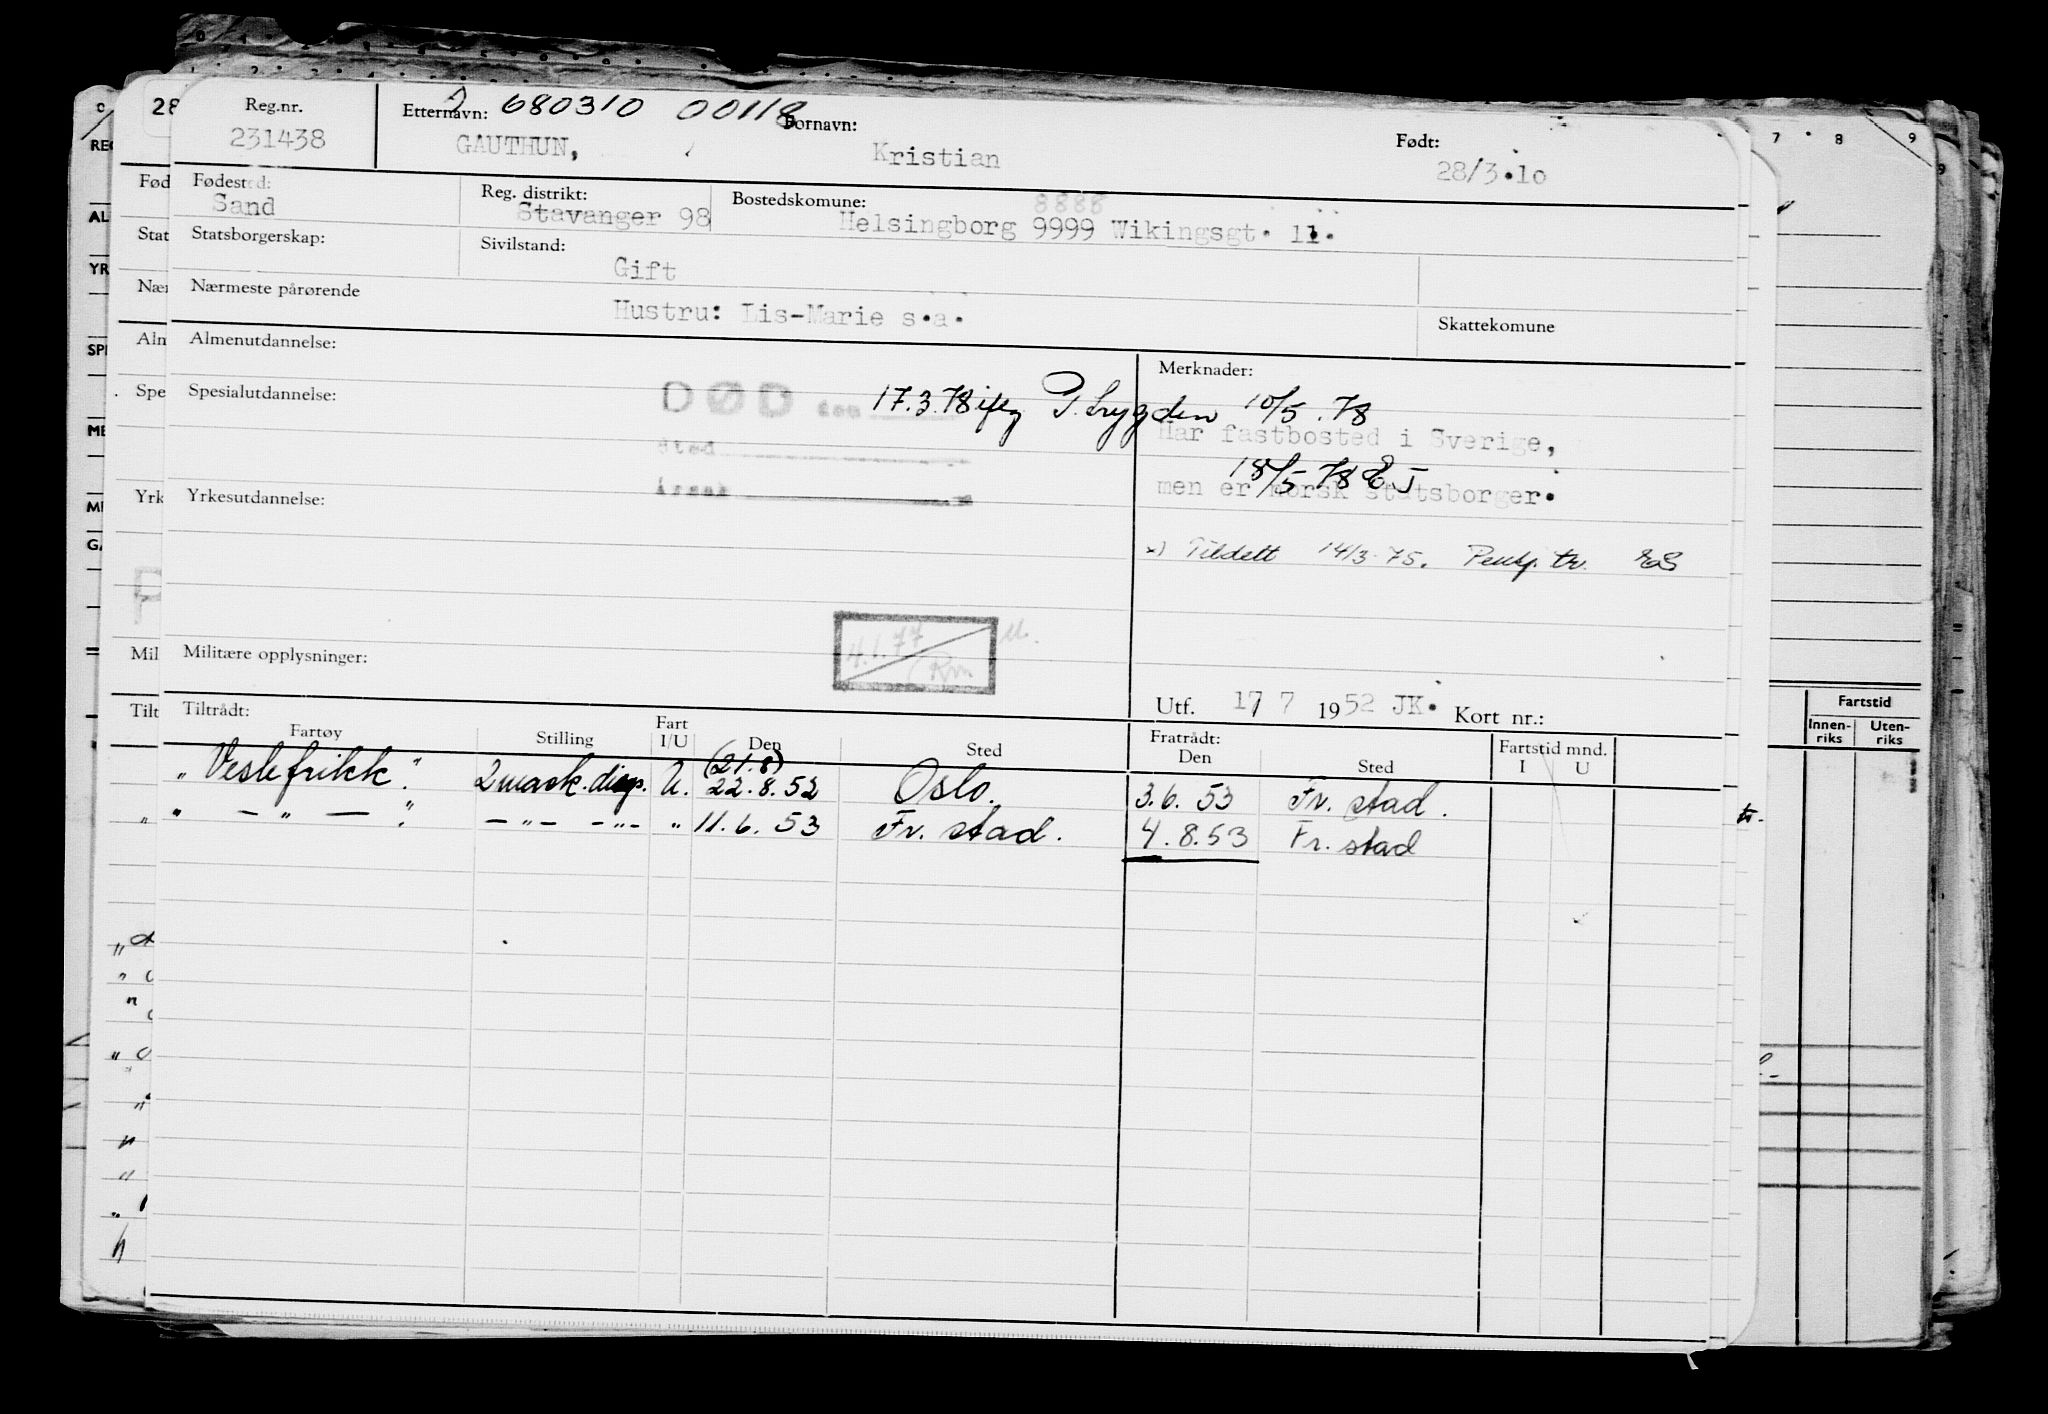 Reg.nr. Etternavn: 680310 00118 Fornavn: Født:
231438 GAUTHUN, Kristian 28/3.1o
Fødested: Reg. distrikt: Bostedskomune: 8888
Sand Stavanger 98 Helsingborg 9999 Wikingsgt. 11.
Statsborgerskap: Sivilstand:
Gift
Nærmeste pårørende
Hustru: Lis-Marie s.a. Skattekomune
Almenutdannelse: Merknader:
Spesialutdannelse: DØD den 17.3.78 iflg P.trygden 10/5.78
Har fastbosted i Sverige,
sted
18/5-78 EJ
årsak men er norsk statsborger.
Yrkesutdannelse:
x) Tildelt 14/3-75. Pensj. tr.
4.1.77
Militære opplysninger:
Utf. 17/7 1952 JK. Kort nr.:
Tiltrådt: Fratrådt:
Fartøy Stilling Fart I/U Den Sted Den Sted Fartstid mnd. I U
(21.8)
"Veslefrikk." 2 mask. disp. U. 22.8.52 Oslo. 3.6.53 Fr.stad.
" — " — " — " — — " — " 11.6.53 Fr.stad. 4.8.53 Fr.stad
28
7 8 9
Fartstid
Innen-
riks
Uten-
riks